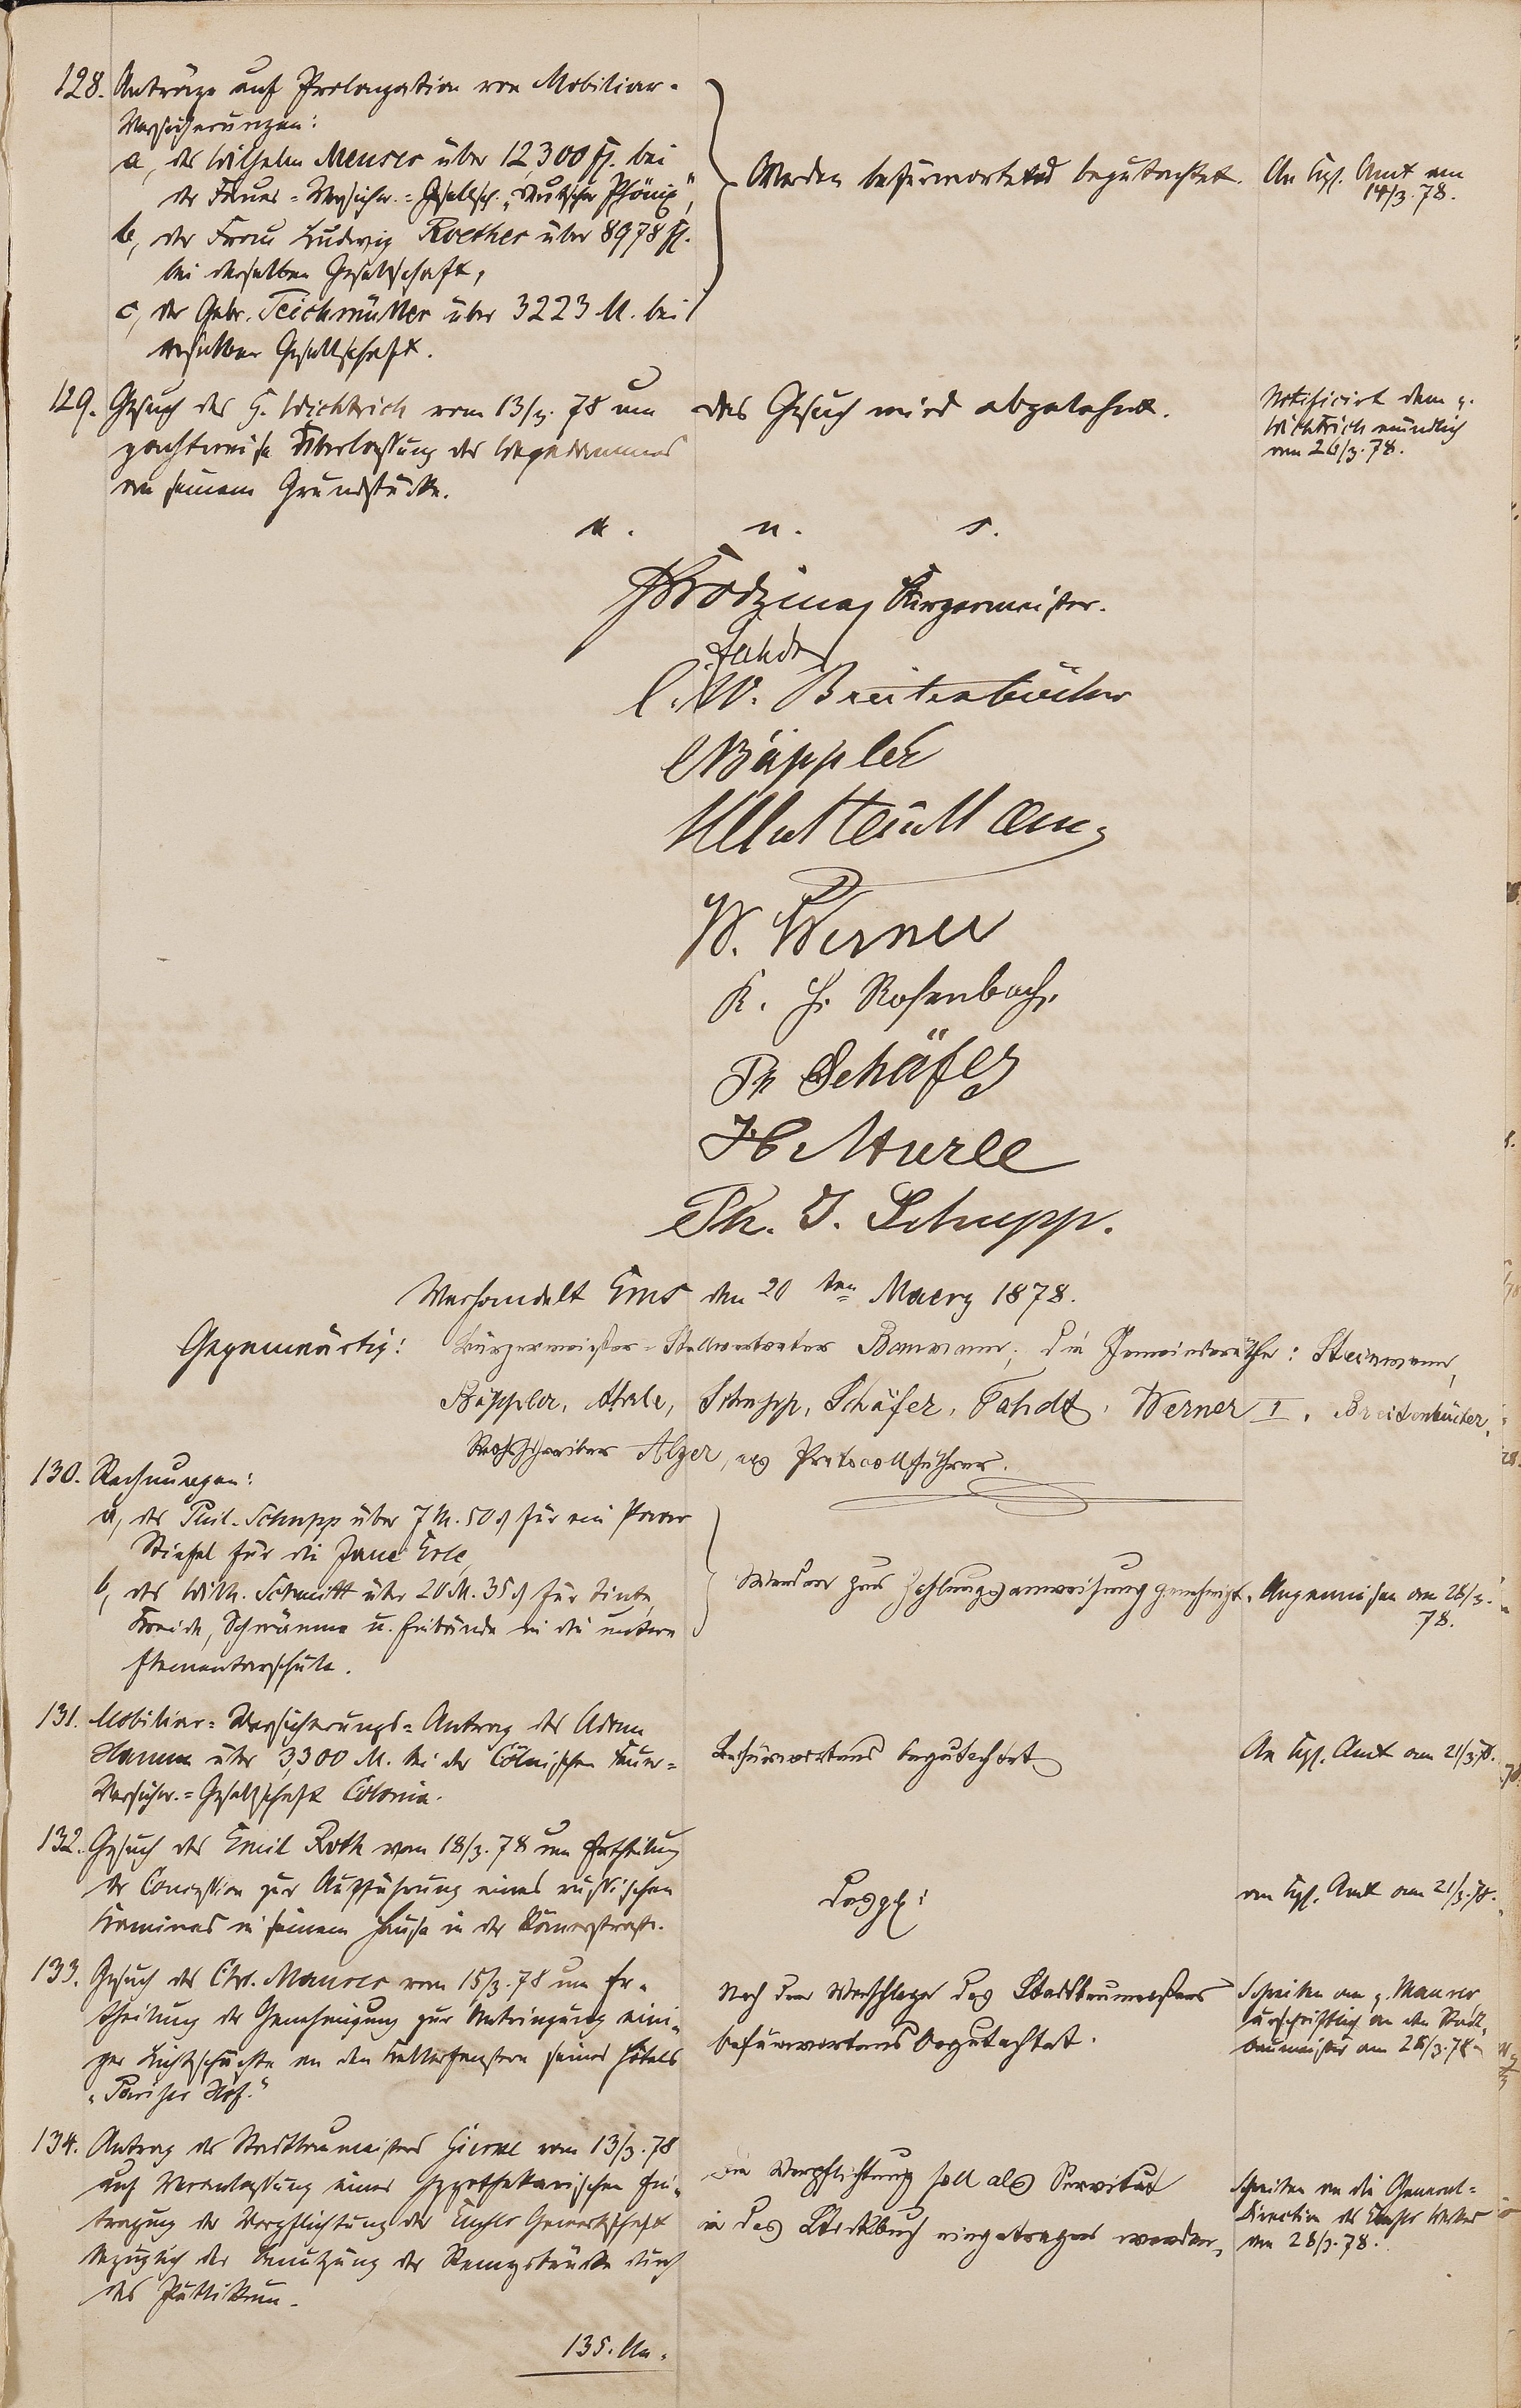 128. Anträge auf Prolongation von Mobiliar-
Versicherungen:
a, des Wilhelm Meuser über 12,300 fl. bei
der Feuer-Versicher.-Gesellsch. „Deutscher Phönix",
b, der Frau Ludwig Roether über 8978 fl.
bei derselben Gesellschaft,
c, der Gebr. Teichmüller über 3223 M. bei
derselben Gesellschaft.
Werden befürwortend begutachtet.
An Kgl. Amt am
14/3. 78.
129. Gesuch des H. Wichtrich vom 13/3. 78 um
pachtweise Überlassung des Wegedammes
an seinem Grundstücke.
Das Gesuch wird abgelehnt.
Notificirt dem p.
Wichtrich mündlich
am 26/3. 78.
a. u. s.
Bürgermeister.
Fahdt
C. W. Breitenbücher
Bäppler
W. Werner
K. H. Rosenbach.
Ph Schäfer
Ph. J. Schupp.
Verhandelt Ems den 20ten Maerz 1878.
Gegenwärtig: Bürgermeister-Stellvertreter Bonmann; die Gemeinderäthe: Steinmann,
Bäppler, Schupp, Schäfer, Fahdt, Werner I, Breitenbücher,
Rathsschreiber Alzer, als Protocollführer.
130. Rechnungen:
a, des Phil. Schupp über 7 M. 50 ₰ für ein Paar
Stiefel für die Jane Erle,
b, des Wilh. Schmitt über 20 M. 35 ₰ für Tinte,
Kreide, Schwämme u. Einbände in die untere
Elementarschule.
Werden zur Zahlungsanweisung genehmigt.
Angewiesen am 28/3.
78.
131. Mobiliar-Versicherungs-Antrag des Adam
Hamm über 3,300 M. bei der Cölnischen Feuer-
Versicher.-Gesellschaft Colonia.
Befürwortend begutachtet
An Kgl. Amt am 21/3. 78.
132. Gesuch des Emil Roth vom 18/3. 78 um Ertheilung
der Concession zur Ausführung eines russischen
Kamines in seinem Hause in der Römerstraße.
Desgl:
an Kgl. Amt am 21/3. 78.
133. Gesuch des Chr. Maurer vom 15/3. 78 um Er-
theilung der Genehmigung zur Anbringung eini-
ger Lichtschächte an den Kellerfenstern seines Hôtels
„Pariser Hof."
Nach dem Vorschlage des Stadtbaumeisters
befürwortend begutachtet.
Schreiben an p. Maurer
urschriftlich an den Stadt-
baumeister am 28/3. 78
134. Antrag des Stadtbaumeisters vom 13/3. 78
auf Veranlassung einer hypothekarischen Ein-
tragung der Verpflichtung der Emser Gewerkschaft
bezüglich der Benutzung der Remybrücke durch
das Publikum.
Die Verpflichtung soll als Servitut
in das Stockbuch eingetragen werden.
Schreiben an die General-
Direction des Emser Werkes
am 28/3. 78.
135. An-